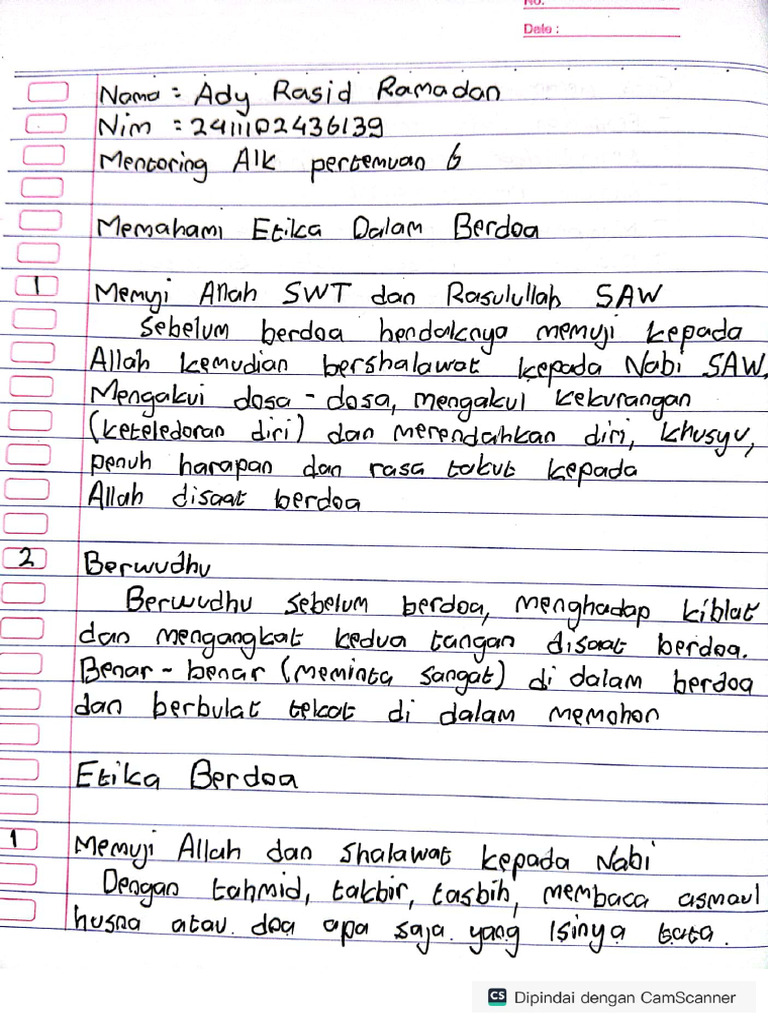 No.
Date :
Nama : Ady Rasid Ramadan
Nim : 2411102436139
Mentoring AIK pertemuan 6
Memahami Etika Dalam Berdoa
1 Memuji Allah SWT dan Rasulullah SAW
Sebelum berdoa hendaknya memuji kepada
Allah kemudian bershalawat kepada Nabi SAW,
Mengakui dosa - dosa, mengakui kekurangan
(keteledoran diri) dan merendahkan diri, khusyu,
penuh harapan dan rasa takut kepada
Allah disaat berdoa
2 Berwudhu
Berwudhu sebelum berdoa, menghadap kiblat
dan mengangkat kedua tangan disaat berdoa.
Benar - benar (meminta sangat) di dalam berdoa
dan berbulat tekat di dalam memohon
Etika Berdoa
1 Memuji Allah dan shalawat kepada Nabi
Dengan tahmid, takbir, tasbih, membaca asmaul
husna atau. doa apa saja. yang isinya
CS Dipindai dengan CamScanner